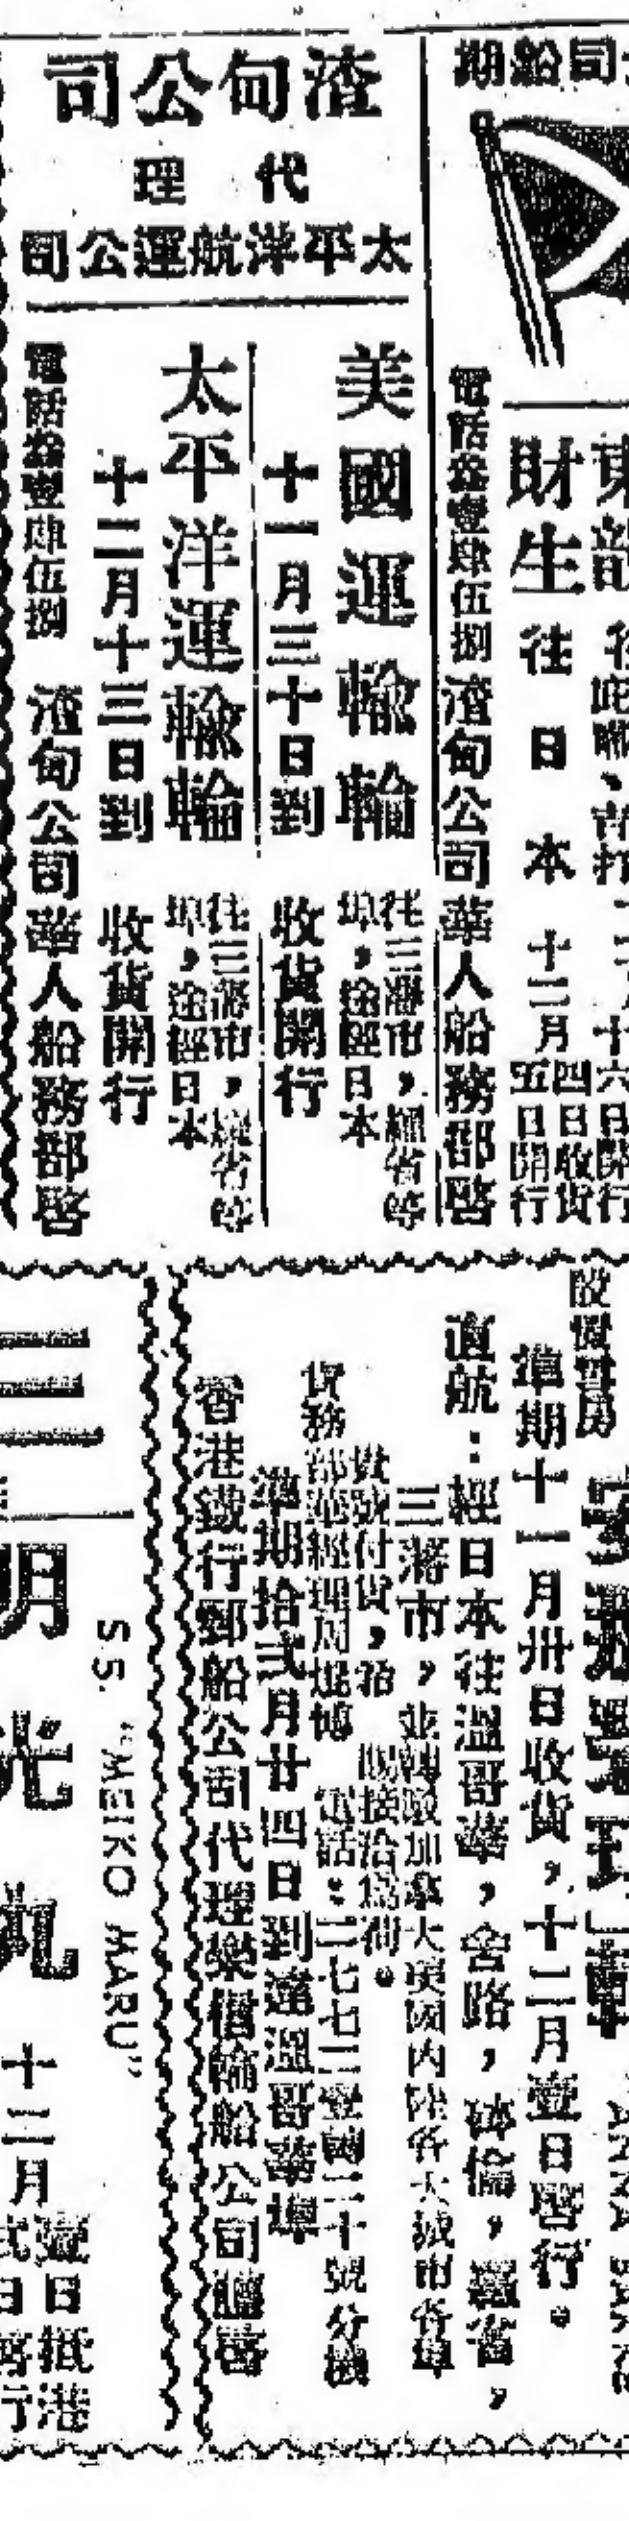 司船期
財生 往日本 十二月 四日收貨 五日開行
電話叁壹肆伍捌 渣甸公司華人船務部啓
渣甸公司
代理
太平洋航運公司
美國運輸輪
往三藩市，羅省等
埠，途經日本
十一月三十日到 收貨開行
太平洋運輸輪
往三藩市，羅省等
埠，途經日本
十二月十三日到 收貨開行
電話叁壹肆伍捌 渣甸公司華人船務部啓
準期十一月卅日收貨，十二月壹日啓行。
直航：經日本往溫哥華，舍路，砵倫，羅省，
三藩市，並轉駁加拿大英國內陸各大城市各埠
貴號付貨，祈 賜接洽爲荷。
貨務部華經理周焜博 電話：二七七二壹轉二十號分機
準期拾弍月廿四日到達溫哥華埠
香港鐵行郵船公司代理樂信輪船公司謹啓
S.S. "MEIKO MARU"
明光丸 十二月 壹日抵港